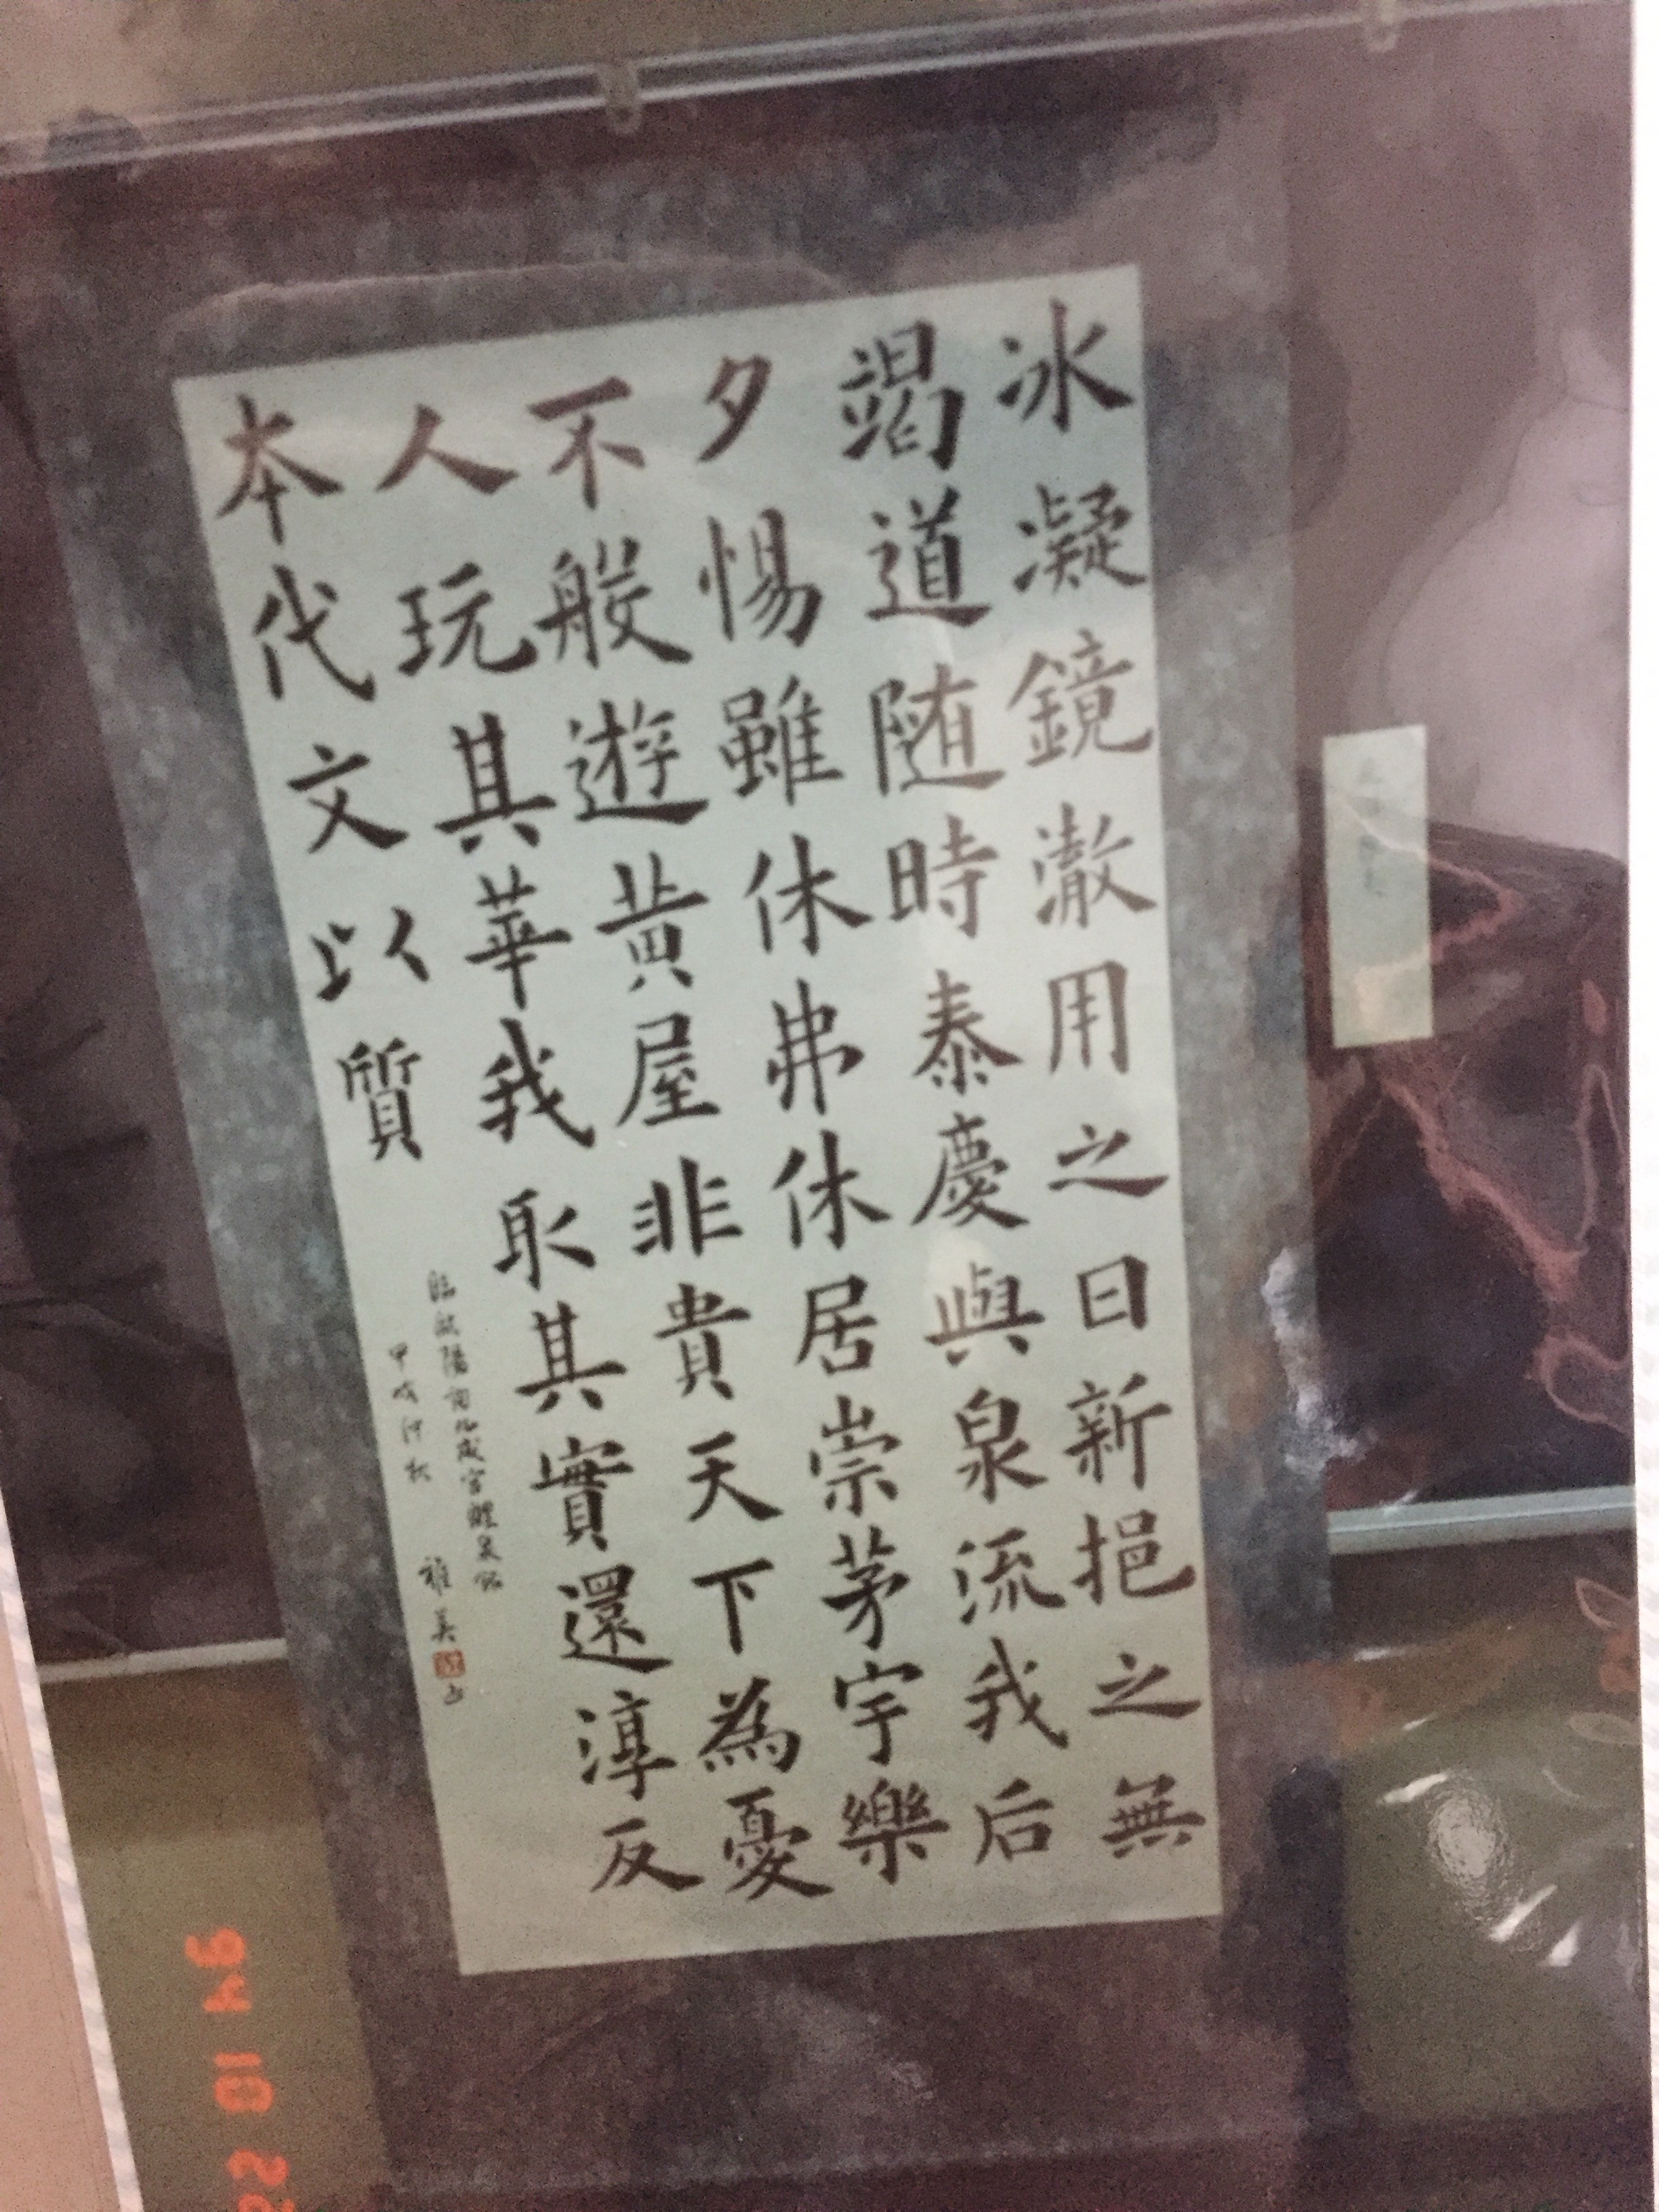 冰凝鏡澈用之日新挹之無
竭道随時泰慶與泉流我后
夕惕雖休弗休居崇茅宇樂
不般遊黃屋非貴天下為憂
人玩其華我取其實還淳反
本代文以質
臨歐陽詢九成宮醴泉銘
甲戌仲秋 雅美
94 10